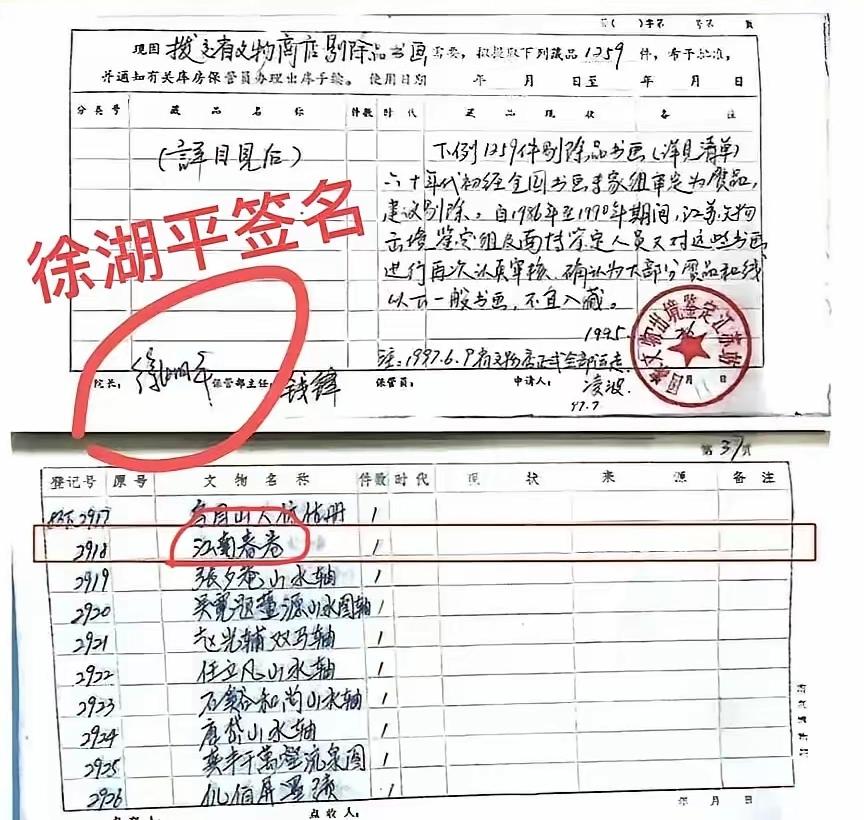 第( )字不 号不 頁
现因拨交省文物商店剔除品书画需要，拟提取下列藏品1259件，希予批准，
并通知有关库房保管员办理出库手续。 使用日期 年 月 日至 年 月 日
分类号 藏品名称 件数 时代 藏品现状 备注
(詳目見后)
下例1259件剔除品书画(详見清单)
六十年代初经全国书画专家组审定为赝品,
建议剔除。自1986年至1990年期间,江苏文物
出境鉴定组及南博鉴定人员又对这些书画
进行再次认真审核,确认为大部分赝品和线
以下一般书画,不宜入藏。
徐湖平签名
1995.
注:1997.6.9省文物店正式全部运走
院长: 徐湖平 保管部主任: 钱锋 保管员: 申请人: 凌波
97.7
国家文物出境鉴定江苏站
第37页
登记号 原号 文物名称 件数 时代 现状 来源 备注
2917 1
2918 江南春卷 1
2919 張夕庵山水轴 1
2920 吴寬题董源山水图轴 1
2921 赵光辅双马轴 1
2922 任立凡山水轴 1
2923 石谿和尚山水轴 1
2924 唐岱山水轴 1
2925 1
2926 1
点收人:
年 月 日